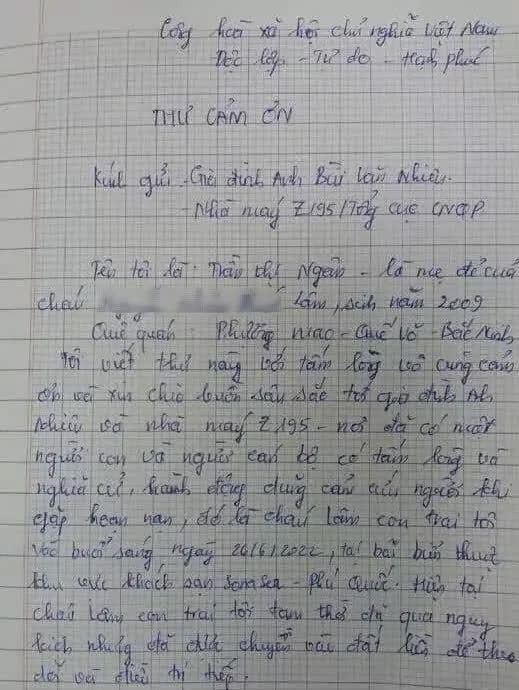 Cộng hoà xã hội chủ nghĩa Việt Nam
Độc lập - Tự do - Hạnh phúc
THƯ CẢM ƠN
Kính gửi - Gia đình Anh Bùi Văn Nhiên.
- Nhà máy Z195/Tổng cục CNQP
Tên tôi là: Trần Thị Ngân - là mẹ đẻ của
cháu Lâm, sinh năm 2009
Quê quán: Phương mao - Quế Võ - Bắc Ninh
Tôi viết thư này với tấm lòng vô cùng cảm
ơn và xin chia buồn sâu sắc tới gia đình Anh
Nhiên và nhà máy Z195 - nơi đã có một
người con và người cán bộ có tấm lòng và
nghĩa cử, hành động dũng cảm cứu người khi
gặp hoạn nạn, đó là cháu Lâm con trai tôi
vào buổi sáng ngày 26/6/2022, tại bãi biển thuộc
khu vực khách sạn Sonasea - Phú Quốc. Hiện tại
cháu Lâm con trai tôi tạm thời đã qua nguy
kịch nhưng đã được chuyển vào đất liền để theo
dõi và điều trị tiếp.